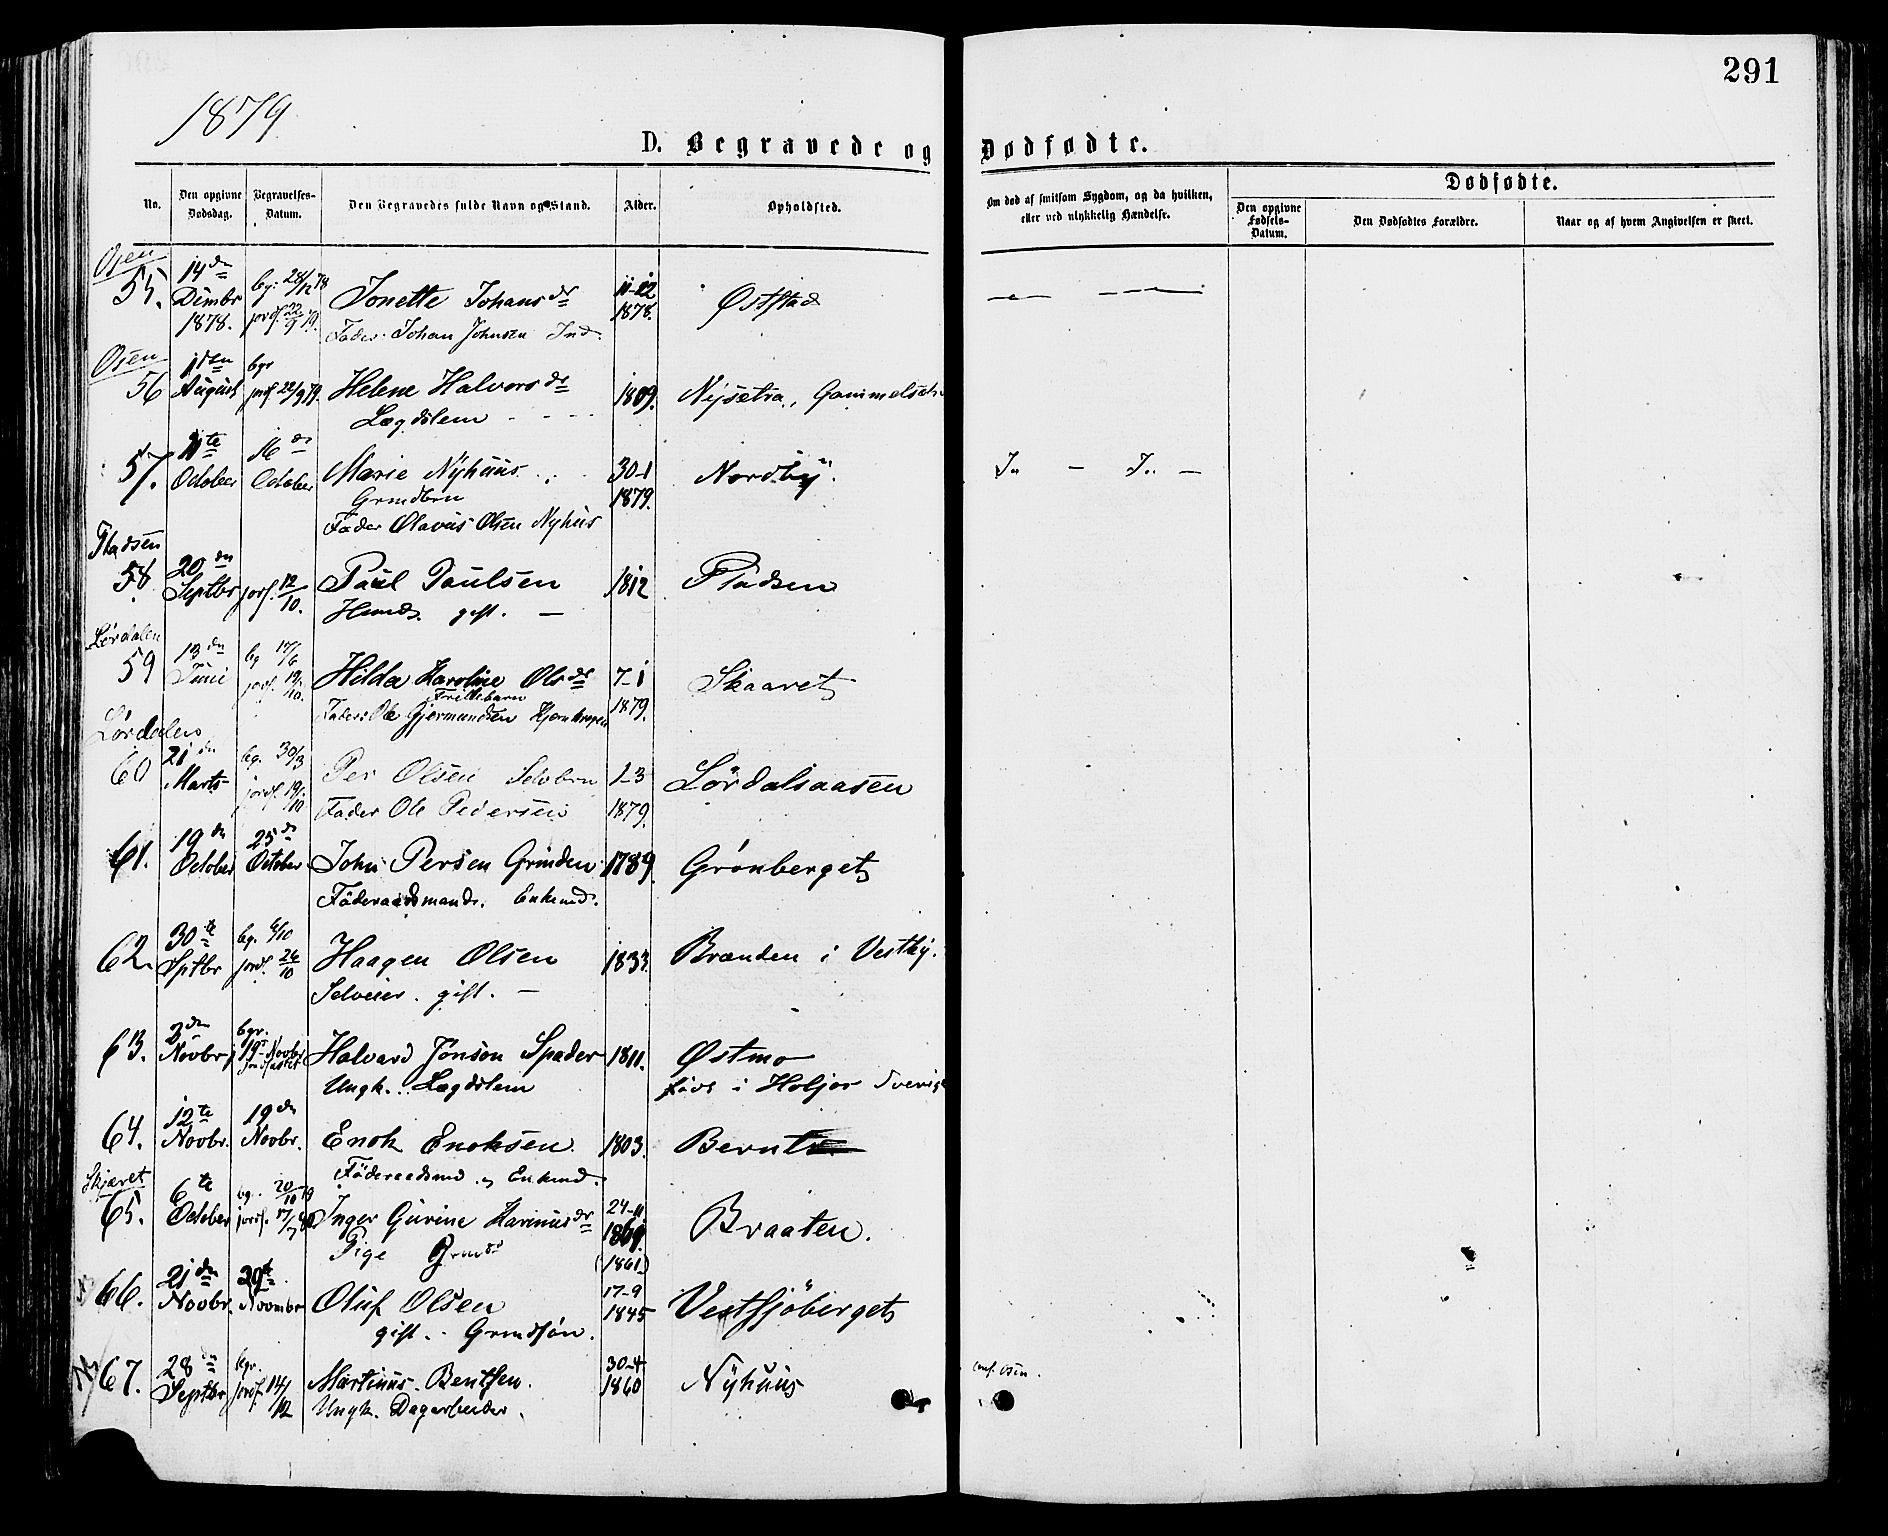 291
1879
D. Begravede og Dødfødte.
No.
Den opgivne Dødsdag.
Begravelses-Datum.
Den Begravedes fulde Navn og Stand.
Alder.
Opholdsted.
Om død af smitsom Sygdom, og da hvilken,
eller ved ulykkelig Hændelse.
Dødfødte.
Den opgivne Fødsels-Datum.
Den Dødfødtes Forældre.
Naar og af hvem Angivelsen er skeet.
Osen
55. 14de Dcmbr 1878. bg: 28/12 78 jordf. 22/9 79. Jonette Johansdr 11-12 1878. Øststad
Fader: Johan Johnsen Ind.
Osen
56 1ste August bgr jordf 22/9 79. Helene Halvorsdr 1809. Nysætra, Gammelsætr
Lægdslem
57. 11te October 16de October Marie Nyhuus 30-1 1879. Nordby
Grmdbrn
Fader Olavus Olsen Nyhus
Pladsen
58. 20de Septbr jorf. 12/10. Paul Paulsen 1812 Pladsen
Husmd. gift.
Lørdalen
59 13de Juni bg 17/6 jorf. 19/10. Hilda Karoline Olsdr 7-1 1879. Skaaret
Frillebarn
Fader: Ole Gjermundsen
Lørdalen
60 21de Marts bg. 30/3 jordf. 19/10 Per Olsen Selvbrn 1-3 1879. Lørdalsaasen
Fader Ole Pedersen
61. 19de October 25de October John Persen Grinden 1789. Grønberget
Föderaadsmand. Enkemd.
62. 30te Sptbr bg. 6/10 jord. 26/10 Haagen Olsen 1833. Brænden i Vestby.
Selveier. gift.
63. 3de Novbr bgr. 19de Novbr jordfæstet Halvard Jonson Spader 1811. Østmo
Ungk. Lægdslem født i Holjor Sverige
64. 12te Novbr. 19de Novbr. Enok Enoksen. 1803. Bernt
Föderaadsmd og Enkemd.
Skjæret
65. 6te October bg. 20/10 79 jordf. 17/7 80 Inger Gurine Karinusdr 24-11 1861. Braaten.
Pige Grmd (1861)
66. 21de Novbr. 29de Novmbr Oluf Olsen 17-9 1845 Vestsjöberget
gift. Grmdsøn.
67. 28de Septbr bgr. jordf. 14/12 Martinus Bentsen. 30-4 1860 Nyhuus
Ungk. Dagarbeider.
conf. Osen.